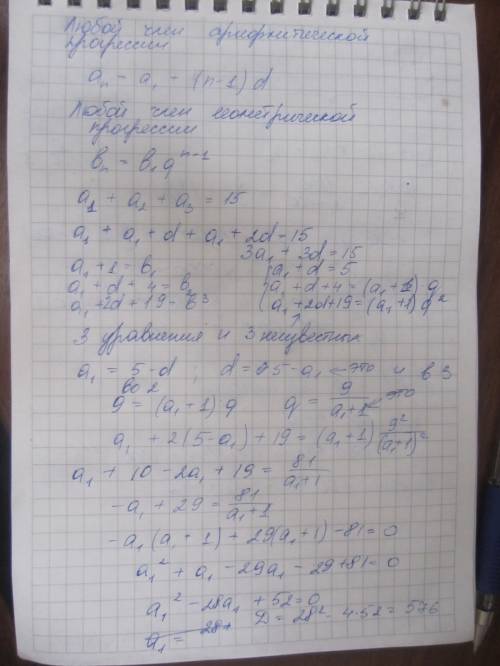 Любой член арифмитической
прогрессии
an = a1 + (n-1)d
Любой член геометрической
прогрессии
bn = b1 q^n-1
a1 + a2 + a3 = 15
a1 + a1 + d + a1 + 2d = 15
3a1 + 3d = 15
a1 + 1 = b1 { a1 + d = 5
a1 + d + 4 = b2 { a1 + d + 4 = (a1 + 1) q
a1 + 2d + 19 = b3 { a1 + 2d + 19 = (a1 + 1) q^2
3 уравнения и 3 неизвестных
a1 = 5 - d ; d = 5 - a1 ← это и в 3
во 2
9 = (a1 + 1) q q = 9/(a1 + 1) ← это
a1 + 2(5 - a1) + 19 = (a1 + 1) 9^2/(a1 + 1)^2
a1 + 10 - 2a1 + 19 = 81/(a1 + 1)
-a1 + 29 = 81/(a1 + 1)
-a1 (a1 + 1) + 29(a1 + 1) - 81 = 0
a1^2 + a1 - 29a1 - 29 + 81 = 0
a1^2 - 28a1 + 52 = 0
D = 28^2 - 4·52 = 576
a1 = 28+